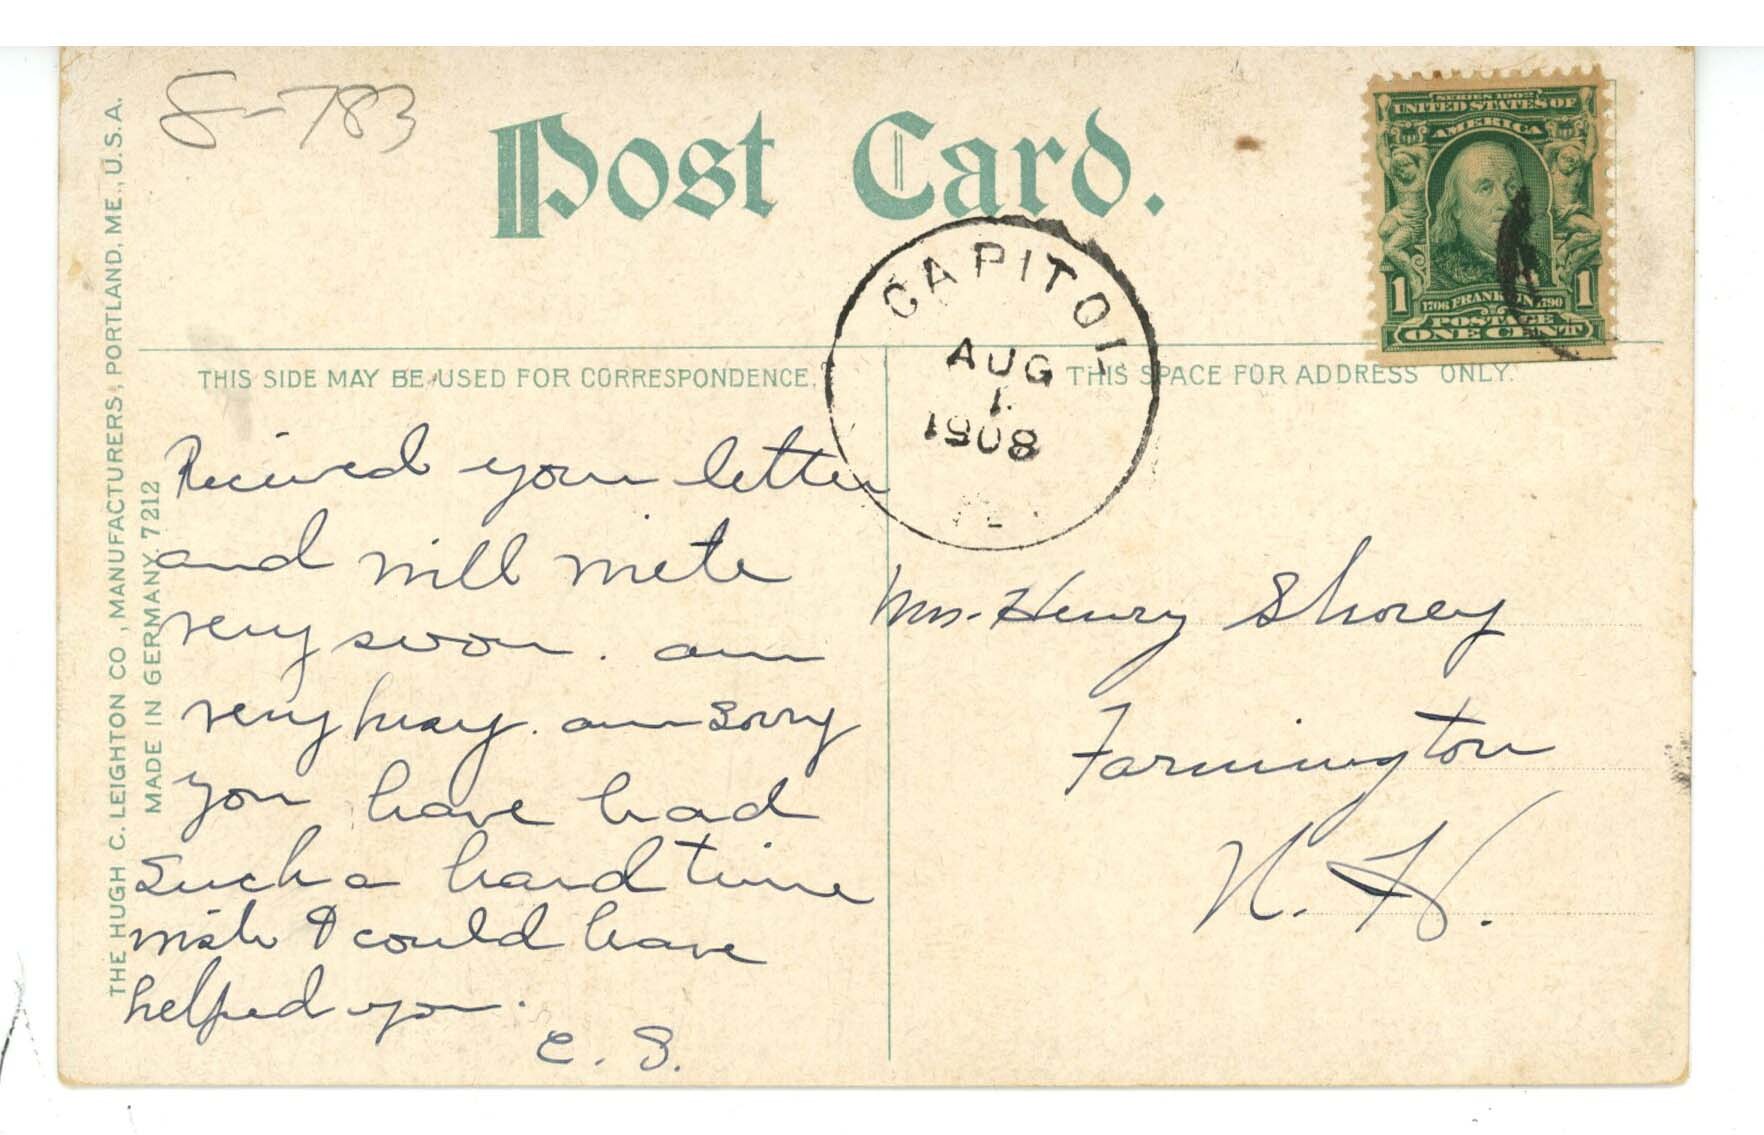 S-783
Post Card.
SERIES 1902
UNITED STATES OF
AMERICA
1 1706 FRANKLIN 1790 1
POSTAGE
ONE CENT
CAPITOL
AUG
1
1908
THIS SIDE MAY BE USED FOR CORRESPONDENCE.
THIS SPACE FOR ADDRESS ONLY.
THE HUGH C. LEIGHTON CO., MANUFACTURERS, PORTLAND, ME., U.S.A.
MADE IN GERMANY. 7212
Received your letter
and will write
very soon. am
very busy. am sorry
you have had
such a hard time
wish I could have
helped you.
E. S.
Mrs. Henry Shorey
Farmington
N. H.